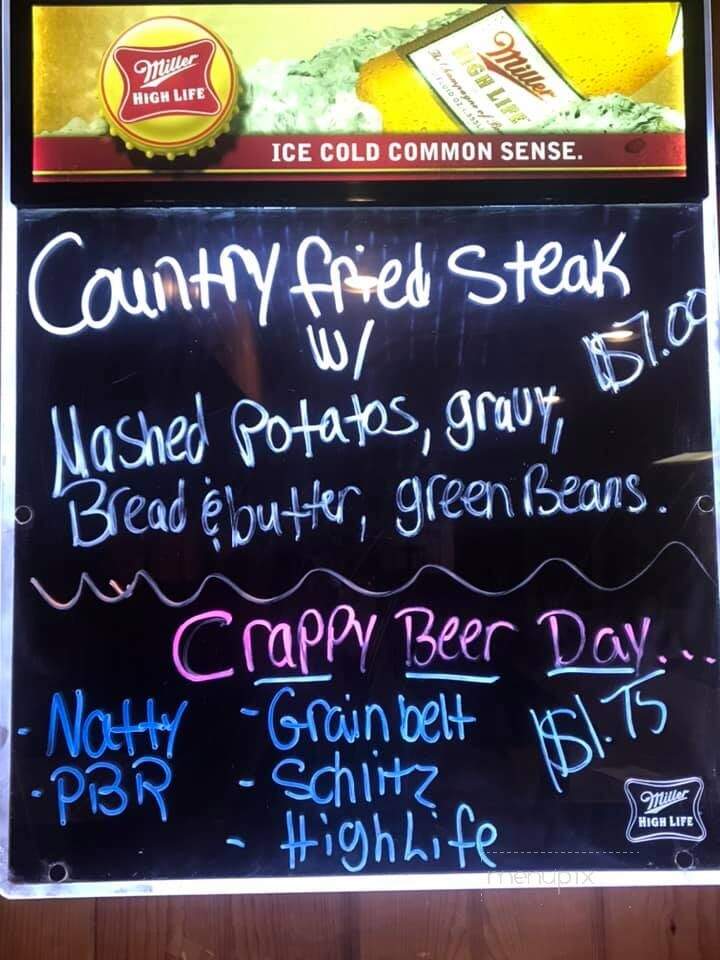 Miller
HIGH LIFE
Miller
HIGH LIFE
The Champagne of
ICE COLD COMMON SENSE.
Country fried Steak
w/
$7.00
Mashed Potatos, gravy,
Bread & butter, green Beans.
Crappy Beer Day...
- Natty - Grain belt $1.75
- PBR - Schlitz
- High Life
Miller
HIGH LIFE
menupix